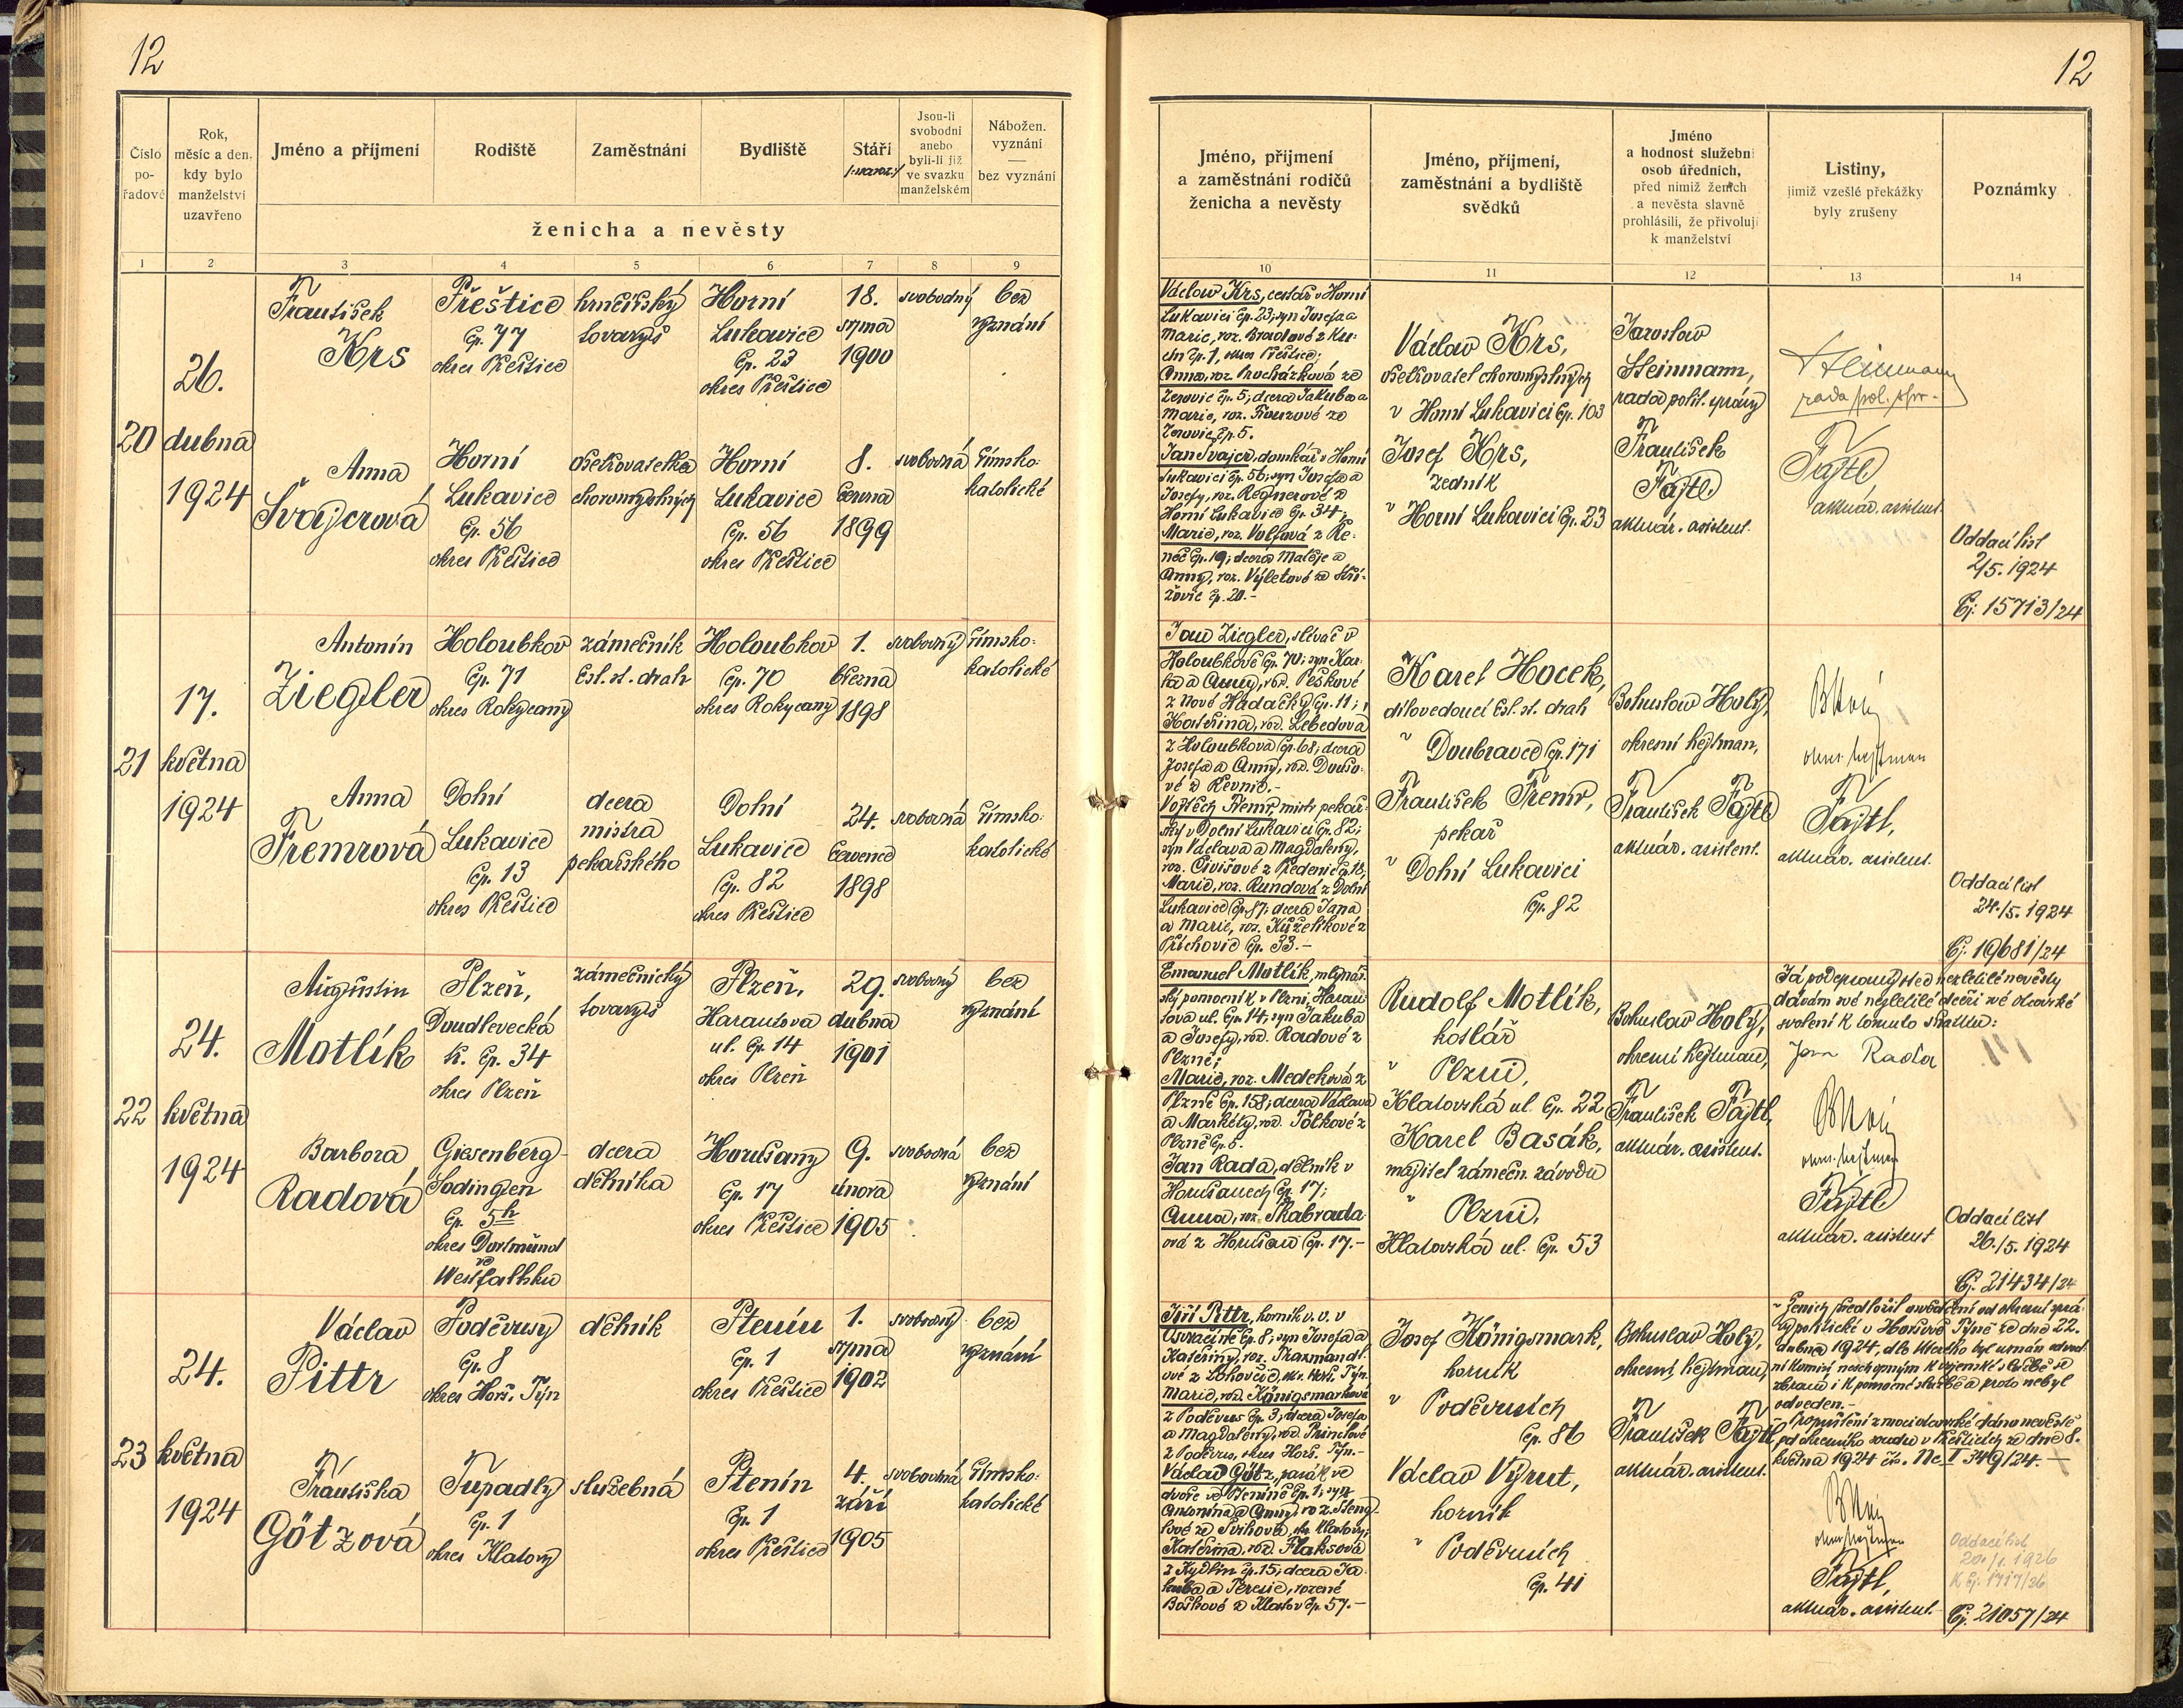 12
12
Číslo
po-
řadové
Rok,
měsíc a den,
kdy bylo
manželství
uzavřeno
Jméno a příjmení
Rodiště
Zaměstnání
Bydliště
Stáří
Jsou-li
svobodni
anebo
byli-li již
ve svazku
manželském
Nábožen.
vyznání
—
bez vyznání
ženicha a nevěsty
1
2
3
4
5
6
7
8
9
Jméno, příjmení
a zaměstnání rodičů
ženicha a nevěsty
Jméno, příjmení,
zaměstnání a bydliště
svědků
Jméno
a hodnost služební
osob úředních,
před nimiž ženich
a nevěsta slavně
prohlásili, že přivolují
k manželství
Listiny,
jimiž vzešlé překážky
byly zrušeny
Poznámky
10
11
12
13
14
20
26.
dubna
1924
František
Krs
Přeštice
čp. 77
okres Přeštice
hrnčířský
tovaryš
Horní
Lukavice
čp. 23
okres Přeštice
18.
srpna
1900
svobodný
bez
vyznání
Anna
Švajcrová
Horní
Lukavice
čp. 56
okres Přeštice
ošetřovatelka
choromyslných
Horní
Lukavice
čp. 56
okres Přeštice
8.
června
1899
svobodná
římsko-
katolické
Václav Krs, cestář v Horní
Lukavici čp. 23; syn Josefa a
Marie, roz.
čp. 1, okres Přeštice;
Anna, roz. Procházková ze
Žerovic čp. 5; dcera Jakuba a
Marie, roz. ze
Žerovic čp. 5.
Jan Švajcr, domkář v Horní
Lukavici čp. 56; syn Josefa a
Josefy, roz. Regnerové z
Horní Lukavice čp. 34;
Marie, roz. Volfová z Ře-
neč čp. 19; dcera Matěje a
Anny, roz. Výletové ze Stří-
žovic čp. 20.-
Václav Krs,
ošetřovatel choromyslných
v Horní Lukavici čp. 103
Josef Krs,
zedník
v Horní Lukavici čp. 23
Jaroslav
Steinmann,
rada polit. správy
František
Fajtl
aktuár. asistent.
Steinmann
rada pol. spr.
Fajtl
aktuár. asistent.
Oddací list
2/5. 1924
Čj. 15713/24
21
17.
května
1924
Antonín
Ziegler
Holoubkov
čp. 71
okres Rokycany
zámečník
čsl. st. drah
Holoubkov
čp. 70
okres Rokycany
1.
března
1898
svobodný
římsko-
katolické
Anna
Tremrová
Dolní
Lukavice
čp. 13
okres Přeštice
dcera
mistra
pekařského
Dolní
Lukavice
čp. 82
okres Přeštice
24.
července
1898
svobodná
římsko-
katolické
Jan Ziegler, slévač v
Holoubkově čp. 70; syn Kar-
la a Anny, roz. Peškové
z Nové Hadačky čp. 11;
Kateřina, roz. Lebedová
z Holoubkova čp. 68; dcera
Josefa a Anny, roz.
vé z
Vojtěch Tremr, mistr pekař-
ský v Dolní Lukavici čp. 82;
syn Václava a Magdaleny,
roz. Čivišové z Předenic čp. 18;
Marie, roz. Rundová z Dolní
Lukavice čp. 87; dcera Jana
a Marie, roz. Kuželíkové z
Příchovic čp. 33.-
Karel Hocek,
dílovedoucí čsl. st. drah
v Doubravce čp. 171
František Tremr,
pekař
v Dolní Lukavici
čp. 82
Bohuslav Holý,
okresní hejtman,
František Fajtl
aktuár. asistent.
BHolý
okres. hejtman
Fajtl,
aktuár. asistent.
Oddací list
24./5. 1924
Čj. 19681/24
22
24.
května
1924
Augustin
Motlík
Plzeň,
Doudlevecká
tř. čp. 34
okres Plzeň
zámečnický
tovaryš
Plzeň,
Harantova
ul. čp. 14
okres Plzeň
29.
dubna
1901
svobodný
bez
vyznání
Barbora
Radová
Giesenberg-
Sodingen
čp. 5h
okres Dortmund
ve
Westfalsku
dcera
dělníka
Horušany
čp. 17
okres Přeštice
9.
února
1905
svobodná
bez
vyznání
Emanuel Motlík, mlynář-
ský pomocník v Plzni, Haran-
tova ul. čp. 14; syn Jakuba
a Josefy, roz. Radové z
Plzně;
Marie, roz. Medeková z
Plzně čp. 158; dcera Václava
a Markéty, roz. Tölkové z
Plzně čp. 6.
Jan Rada, dělník v
Horušanech čp. 17;
Anna, roz. Škabrada-
ová z Horušan čp. 17.-
Rudolf Motlík,
kotlář
v Plzni,
Klatovská ul. čp. 22
Karel Basák,
majitel zámečn. závodu
v Plzni,
Klatovská ul. čp. 53
Bohuslav Holý,
okresní hejtman,
František Fajtl,
aktuár. asistent.
Já podepsaný otec nezletilé nevěsty
dávám své nezletilé dceři své otcovské
svolení k tomuto sňatku:
Jan Rada
BHolý
okres. hejtman
Fajtl
aktuár. asistent
Oddací list
26./5. 1924
Čj. 21434/24
23
24.
května
1924
Václav
Pittr
Poděvusy
čp. 8
okres Horš. Týn
dělník
Ptenín
čp. 1
okres Přeštice
1.
srpna
1902
svobodný
bez
vyznání
Františka
Götzová
Tupadly
čp. 1
okres Klatovy
služebná
Ptenín
čp. 1
okres Přeštice
4.
září
1905
svobodná
římsko-
katolické
Jiří Pittr, horník v. v. v
Osvračíně čp. 8; syn Josefa a
Kateřiny, roz.
ové z okr. Horš. Týn.
Marie, roz. Königsmarková
z Poděvus čp. 3; dcera Josefa
a Magdaleny, roz. Princlové
z Poděvus, okres Horš. Týn.-
Václav Götz, pasák ve
dvoře ve Pteníně čp. 1; syn
Antonína a Anny, roz. Steng-
lové ze Švihova, okr. Klatovy;
Kateřina, roz. Flaksová
z Kydlin čp. 15; dcera Ja-
kuba a Terezie, rozené
Boškové z Klatov čp. 57.-
Josef Königsmark,
horník
v Poděvusích
čp. 86
Václav Výrut,
horník
v Poděvusích
čp. 41
Bohuslav Holý,
okresní hejtman,
František Fajtl,
aktuár. asistent.
Ženich předložil osvědčení od okresní sprá-
vy politické v Horšově Týně ze dne 22.
dubna 1924, dle kterého byl uznán odvod-
ní komisí neschopným k vojenské službě se
zbraní i k pomocné službě a proto nebyl
odveden.-
Propuštění z moci otcovské dáno nevěstě
od okresního soudu v Přešticích ze dne 8.
května 1924 čís. Nc I 349/24.-
BHolý
okres. hejtman
Fajtl,
aktuár. asistent.
Oddací list
20/1. 1926
K čj. 1717/26
Čj. 21057/24